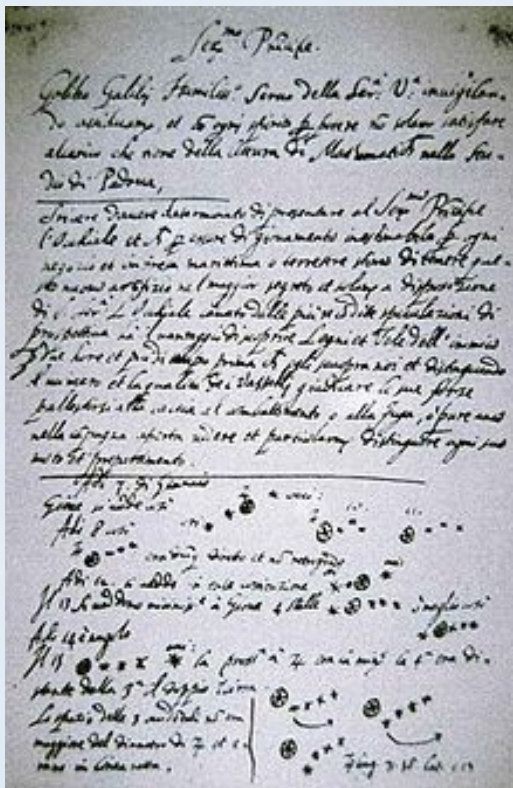 Ser.mo Principe.
Galileo Galilei Humiliss.o Servo della Ser.a V.a invigilan-
do assiduam.te et ogni spirito p potere nō solam satisfare
alcarico che tiene della lettura di Mathematich nello Stu-
dio di Padova,
Scrivere d'havere determinato di presentare al Ser.mo Principe
l'Occhiale et p essere di giovamento inestimabile p ogni
negotio et impresa marittima o terrestre stimo di tenere que-
sto nuovo artifizio nel maggior segreto et solam a dispositione
di S. Ser. L'Occhiale cavato dalle più recondite speculazioni di
prospettiva ha il vantaggio di scoprire Legni et Vele dell' inimico
due hore et più di tempo prima ch egli scuopra noi et distinguendo
il numero et la qualità de i Vasselli giudicare le sue forze
pallestirsi alla caccia al combattimento o alla fuga, o pure anco
nella campagna aperta vedere et particolarm distinguere ogni suo
moto et preparamento.
Adi 7. di Gennaio
Giove si vede così
Adi 8 così
era diretto et nō retrogrado
Adi 12. si vedde in tale costituzione
Il 13 si veddono à Giove 4 stelle meglio così
Adi 14 è nugolo
Il 15 la pross.a à era la la 4.a era di-
stante dalla 3.a il doppio
Lo spazio delle 3 nō era
maggiore del diametro di et e-
rano in linea retta.